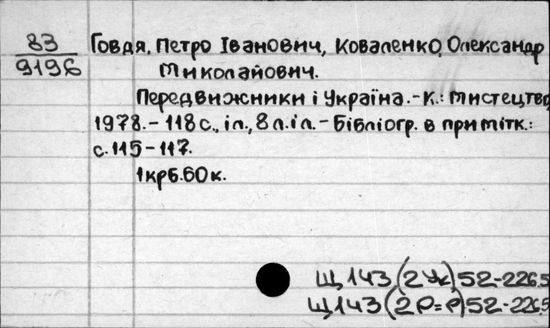 83
9196
Говдя, Петро Іванович, Коваленко, Олександр
Миколайович.
Передвижники і Україна.-К.: Мистецтво,
1978.-118с., іл., 8л.іл.-Бібліогр. в приміт.:
с.115-117.
1крб.60к.
Щ143(2Ук)52-226.5
Щ143(2Р=Р)52-226.5